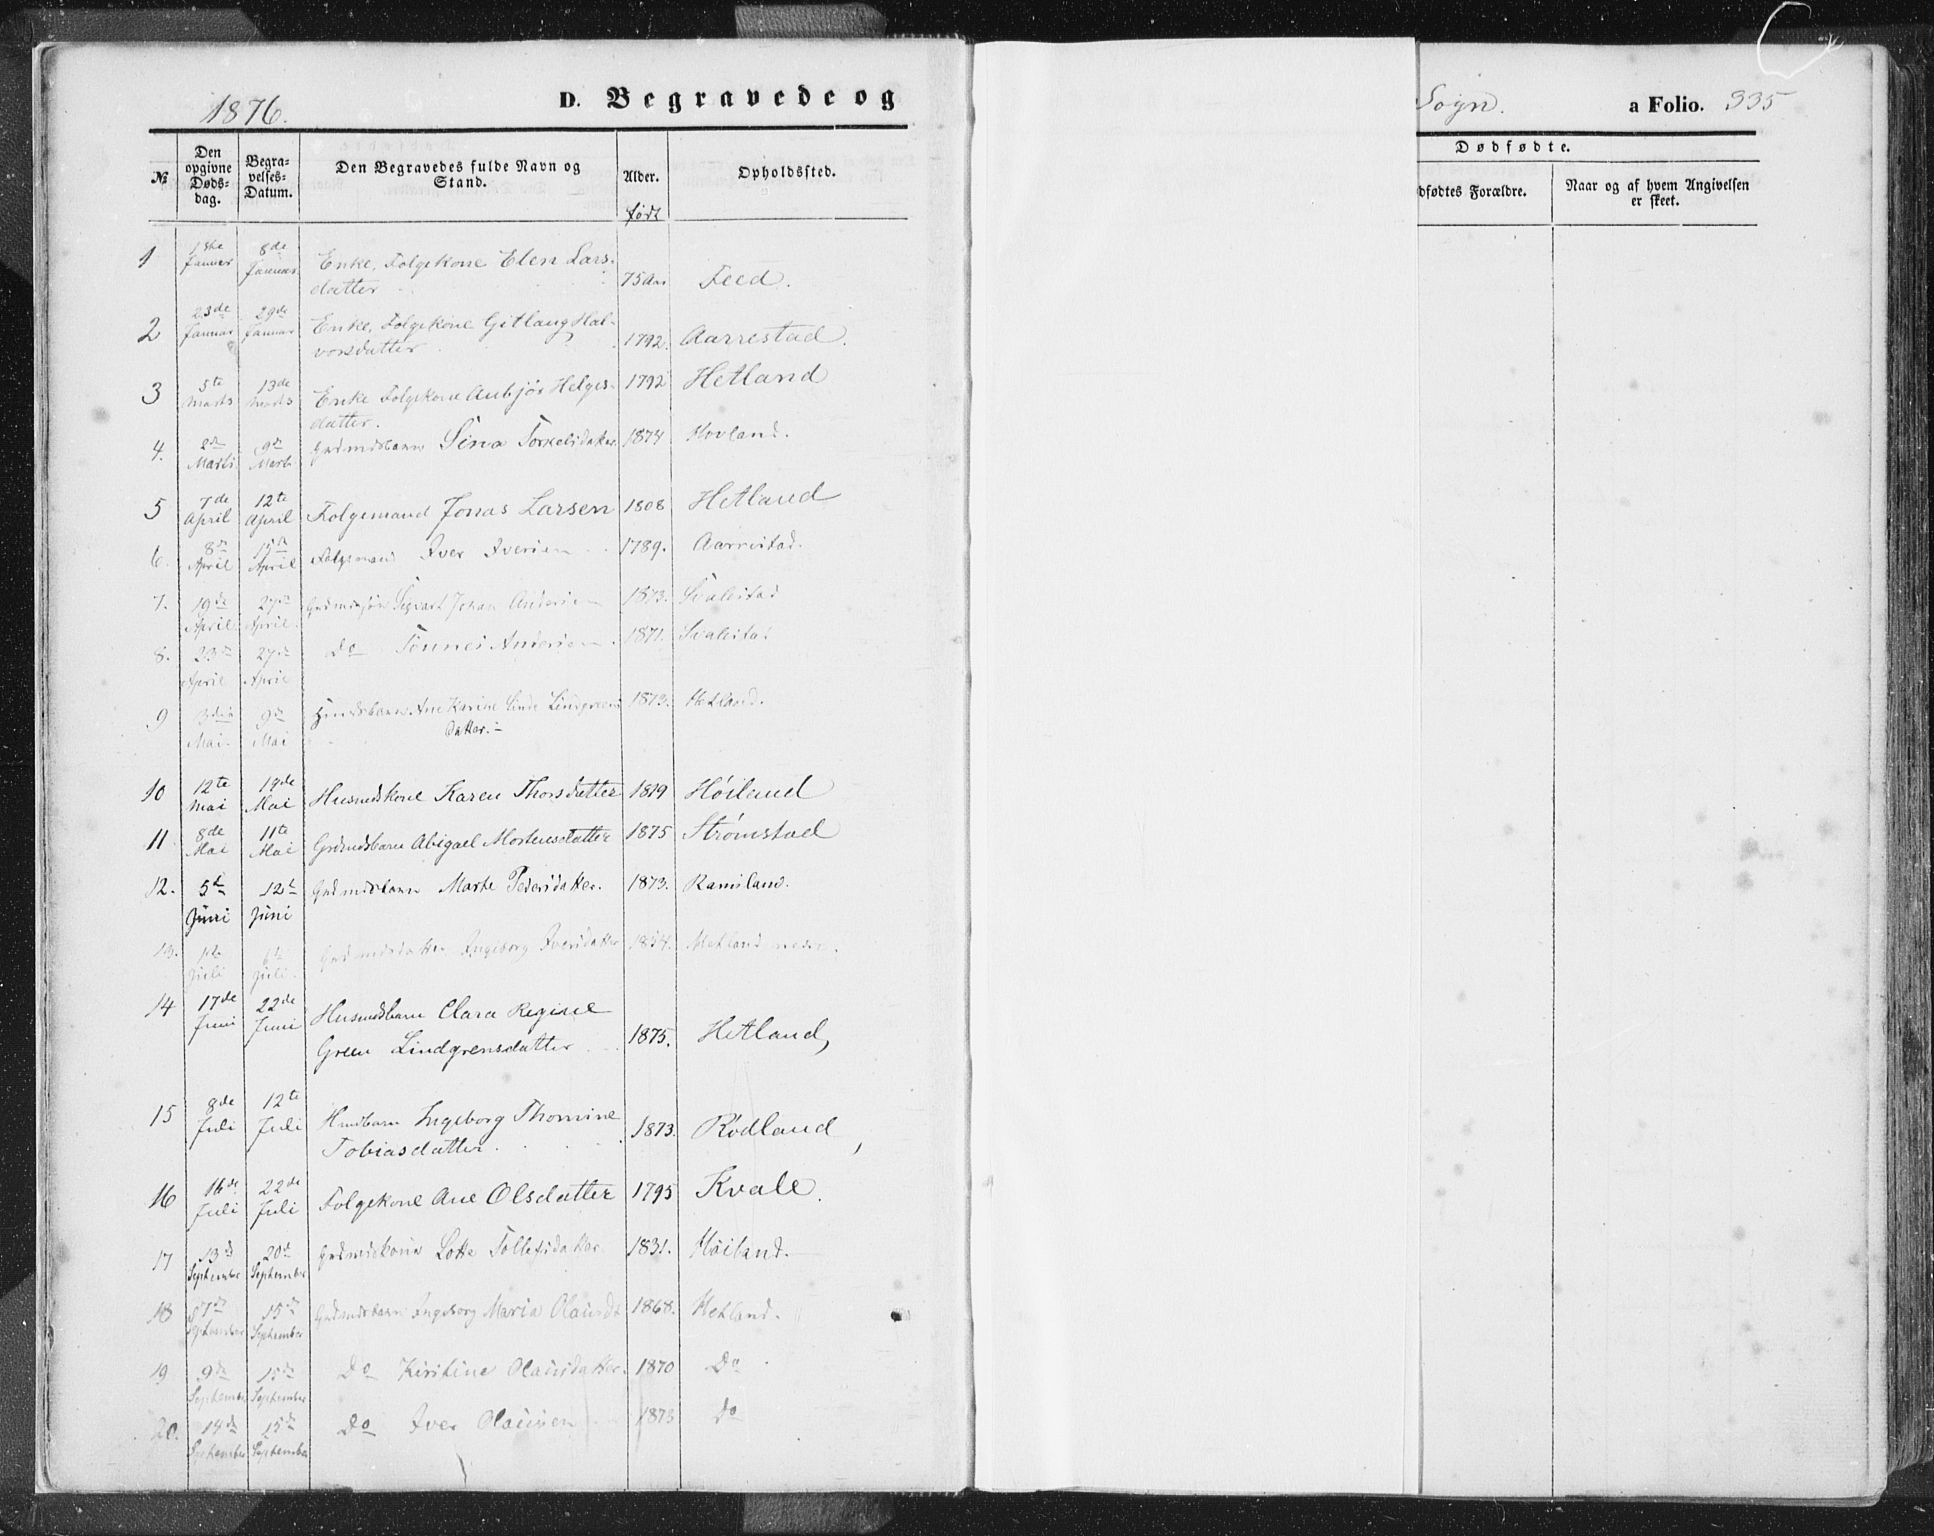 1876.
D. Begravede og
№
Den opgivne Døds-dag.
Begra-velses-Datum.
Den Begravedes fulde Navn og Stand.
Alder.
født
Opholdssted.
1 1ste Januar 8de Januar Enke, Folgekone Elen Lars-
datter 75 Aar Feed.
2 23de Januar 29de Januar Enke, Folgekone Gitlaug Hal-
vorsdatter 1792. Aarrestad.
3 5te Marts 13de Marts Enke Folgekone Anbjør Helges-
datter. 1792 Hetland
4. 2de Marts 9de Marts Grdmdsbarn Sina Torkelsdatter 1874 Hovland.
5 7de April 12te April Folgemand Jonas Larsen 1808 Hetland
6. 8de April 15de April Folgemand Iver Iversen 1789. Aarrestad.
7. 19de April 27de April Grdmdssøn Sigvart Johan Andersen 1873. Svalestad
8. 23de April 27de April Do Tønnes Andersen. 1871. Svalestad
9 Mai. 9de Mai Husmdsbarn Ane Karine Linde Lindgreens
datter.- 1873. Hetland.
10 12te Mai 19de Mai Husmdskone Karen Thorsdatter 1819 Høiland
11 8de Mai 11te Mai Grdmdsbarn Abigael Mortensdatter 1875 Strømstad
12. 5te Juni 12te Juni Grdmdsbarn Marte Pedersdatter. 1873. Ramsland.
13. 1ste Juli 6te Juli. Grdmdsdatter Ingeborg Iversdatter 1854. Hetland nedre.
14 17de Juni 22de Juni Husmdsbarn Clara Regine
Green Lindgrensdatter 1875. Hetland,
15 8de Juli 12te Juli Husmdbarn Ingeborg Thomine
Tobiasdatter. 1873. Rødland,
16 16de Juli 22de Juli Folgekone Ane Olsdatter 1795 Kvale.
17 13de September 20de September Grdmdskone Lotte Tollefsdatter. 1831. Høiland.
18 7de September 15de September Grdmdsbarn Ingeborg Maria Olausdt 1868. Hetland.
19 9de September 15de September Do Kirstine Olausdatter. 1870 Do
20. 14de September 15de September Do Iver Olausen 1873 Do
Sogn.
a Folio. 335
Dødfødte.
dfødtes Forældre.
Naar og af hvem Angivelsen er skeet.